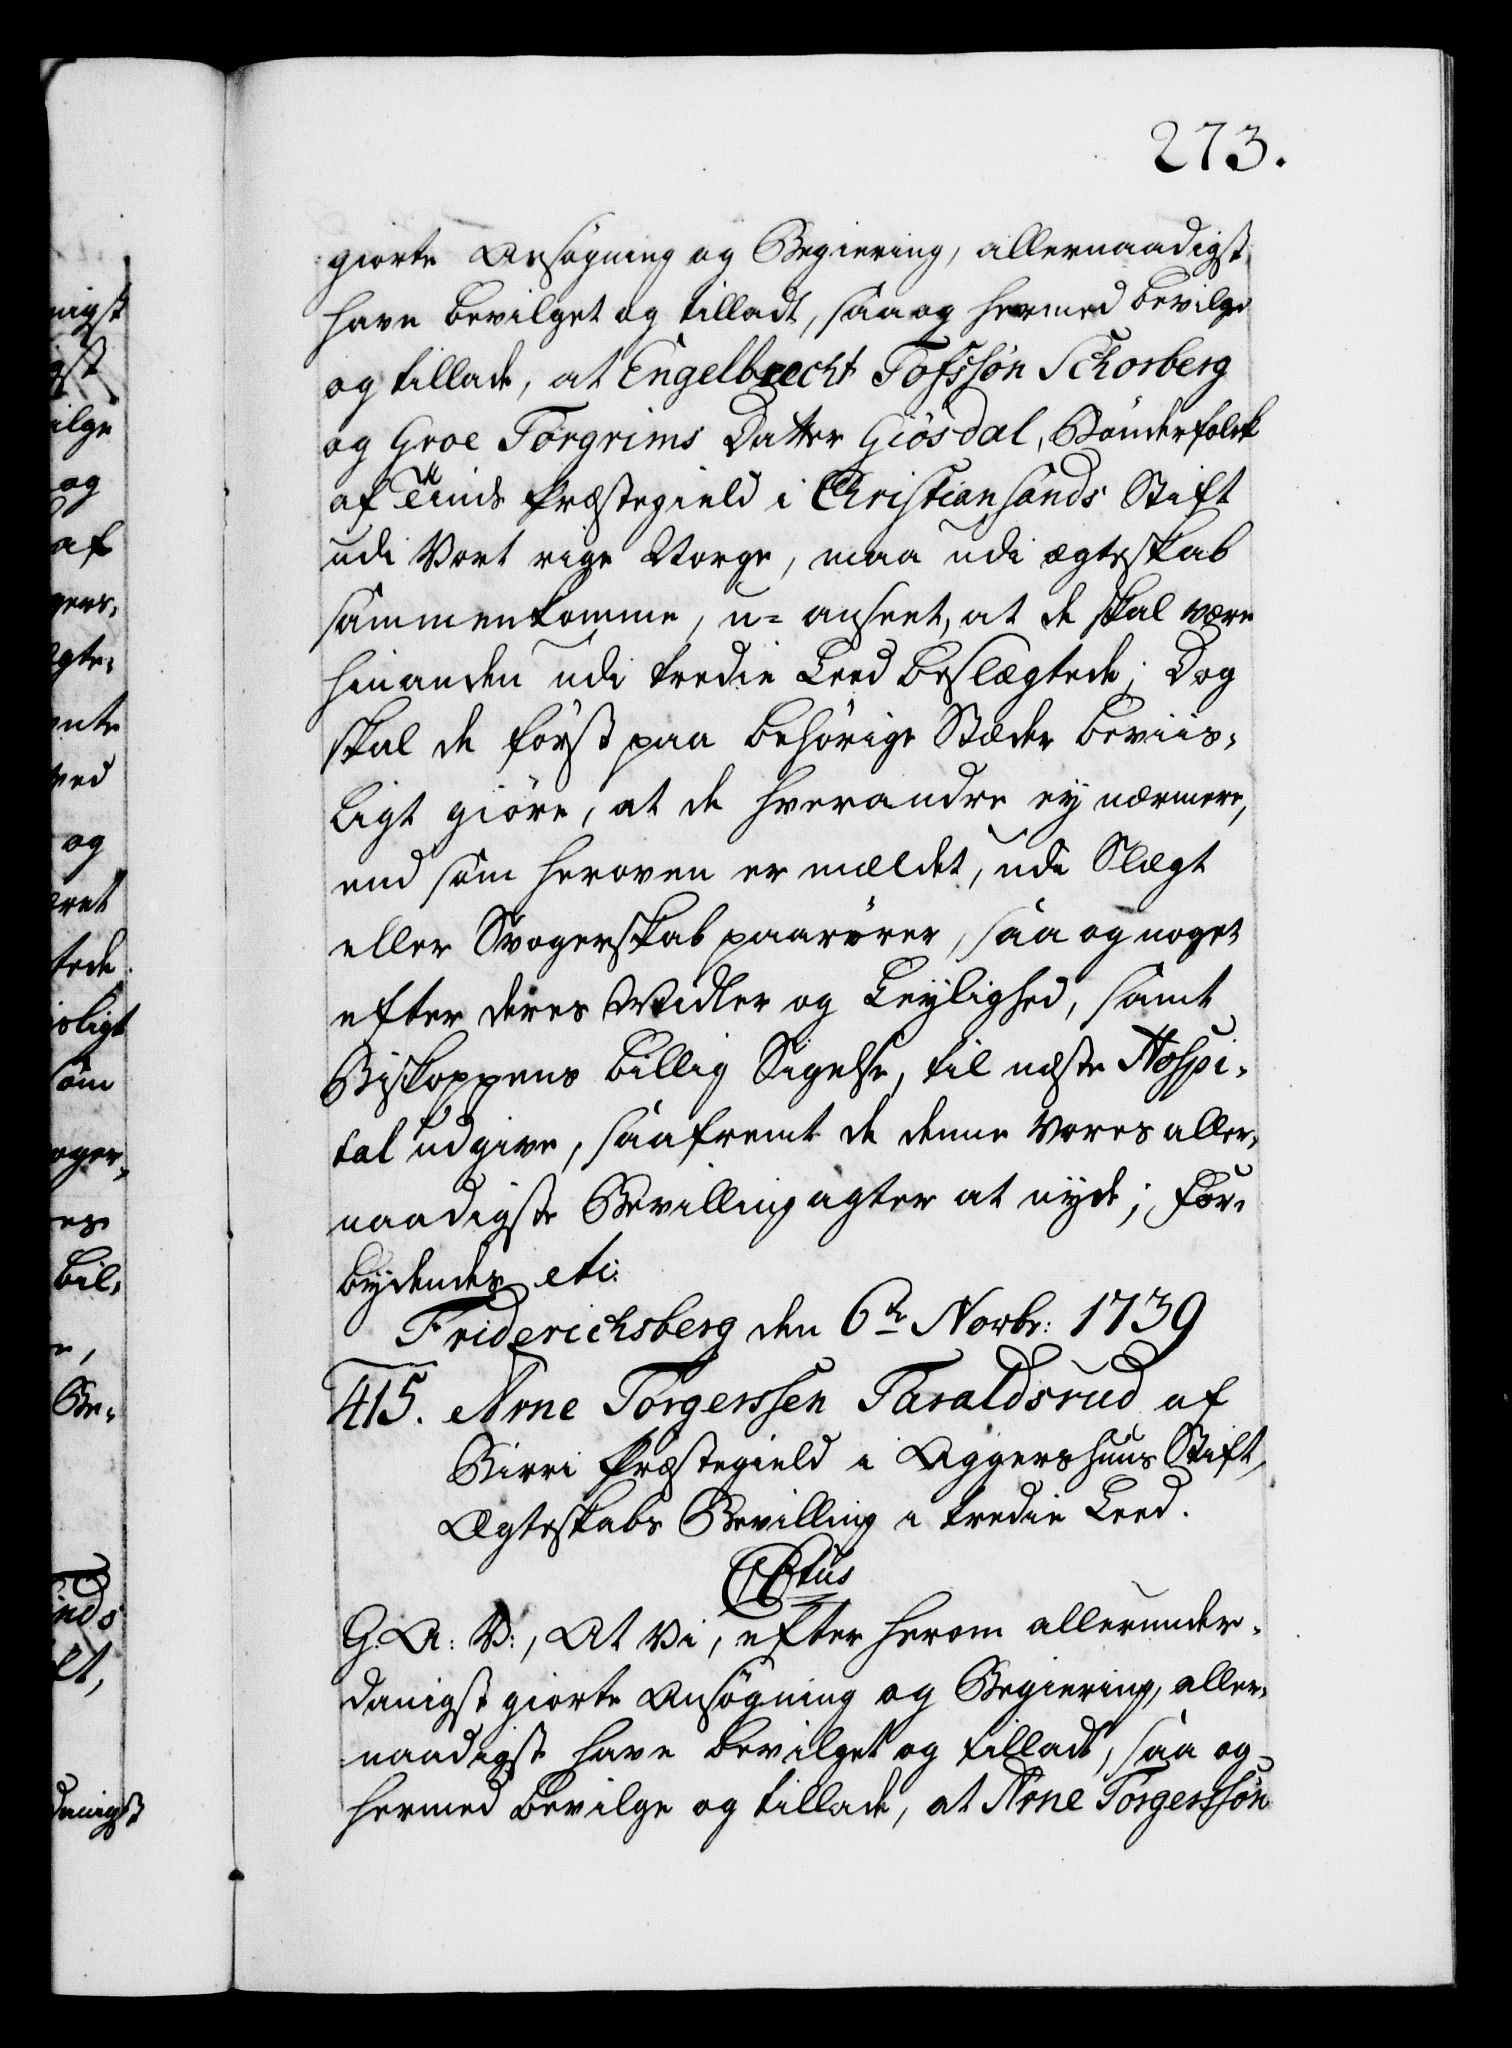 273.
giorte Ansøgning og Begiering, allernaadigst
have bevilget og tilladt, saa og hermed bevilge
og tillade, at Engelbrecht Tofssøn Schorberg
og Groe Torgrims Datter Giösdal, Bönderfolck
af Tinds Præstegield i Christiansands Stift
udi Vort rige Norge, maa udi ægteskab
sammenkomme, u-anseet, at de skal være
hinanden udi tredie Leed beslægtede; Dog
skal de först paa behörige Stæder beviis-
ligt giöre, at de hverandre ey nærmere,
end som heroven er mældet, udi Slægt
eller Svogerskab paarører, saa og noget
efter deres Midler og Leylighed, samt
Biskoppens billig Sigelse, til næste Hospi-
tal udgive, saafremt de denne Vores aller-
naadigste Bevilling agter at nyde; For-
bydendes etc:
Friderichsberg den 6te Novbr: 1739
415. Arne Torgerssen Taraldsrud af
Birri Præstegield i Aggershuus Stift,
Ægteskabs Bevilling i tredie Leed.
G. A: V:, At Vi, efter herom allerunder-
danigst giorte Ansøgning og Begiering, aller-
naadigst have bevilget og tilladt, saa og
hermed bevilge og tillade, at Arne Torgerssøn